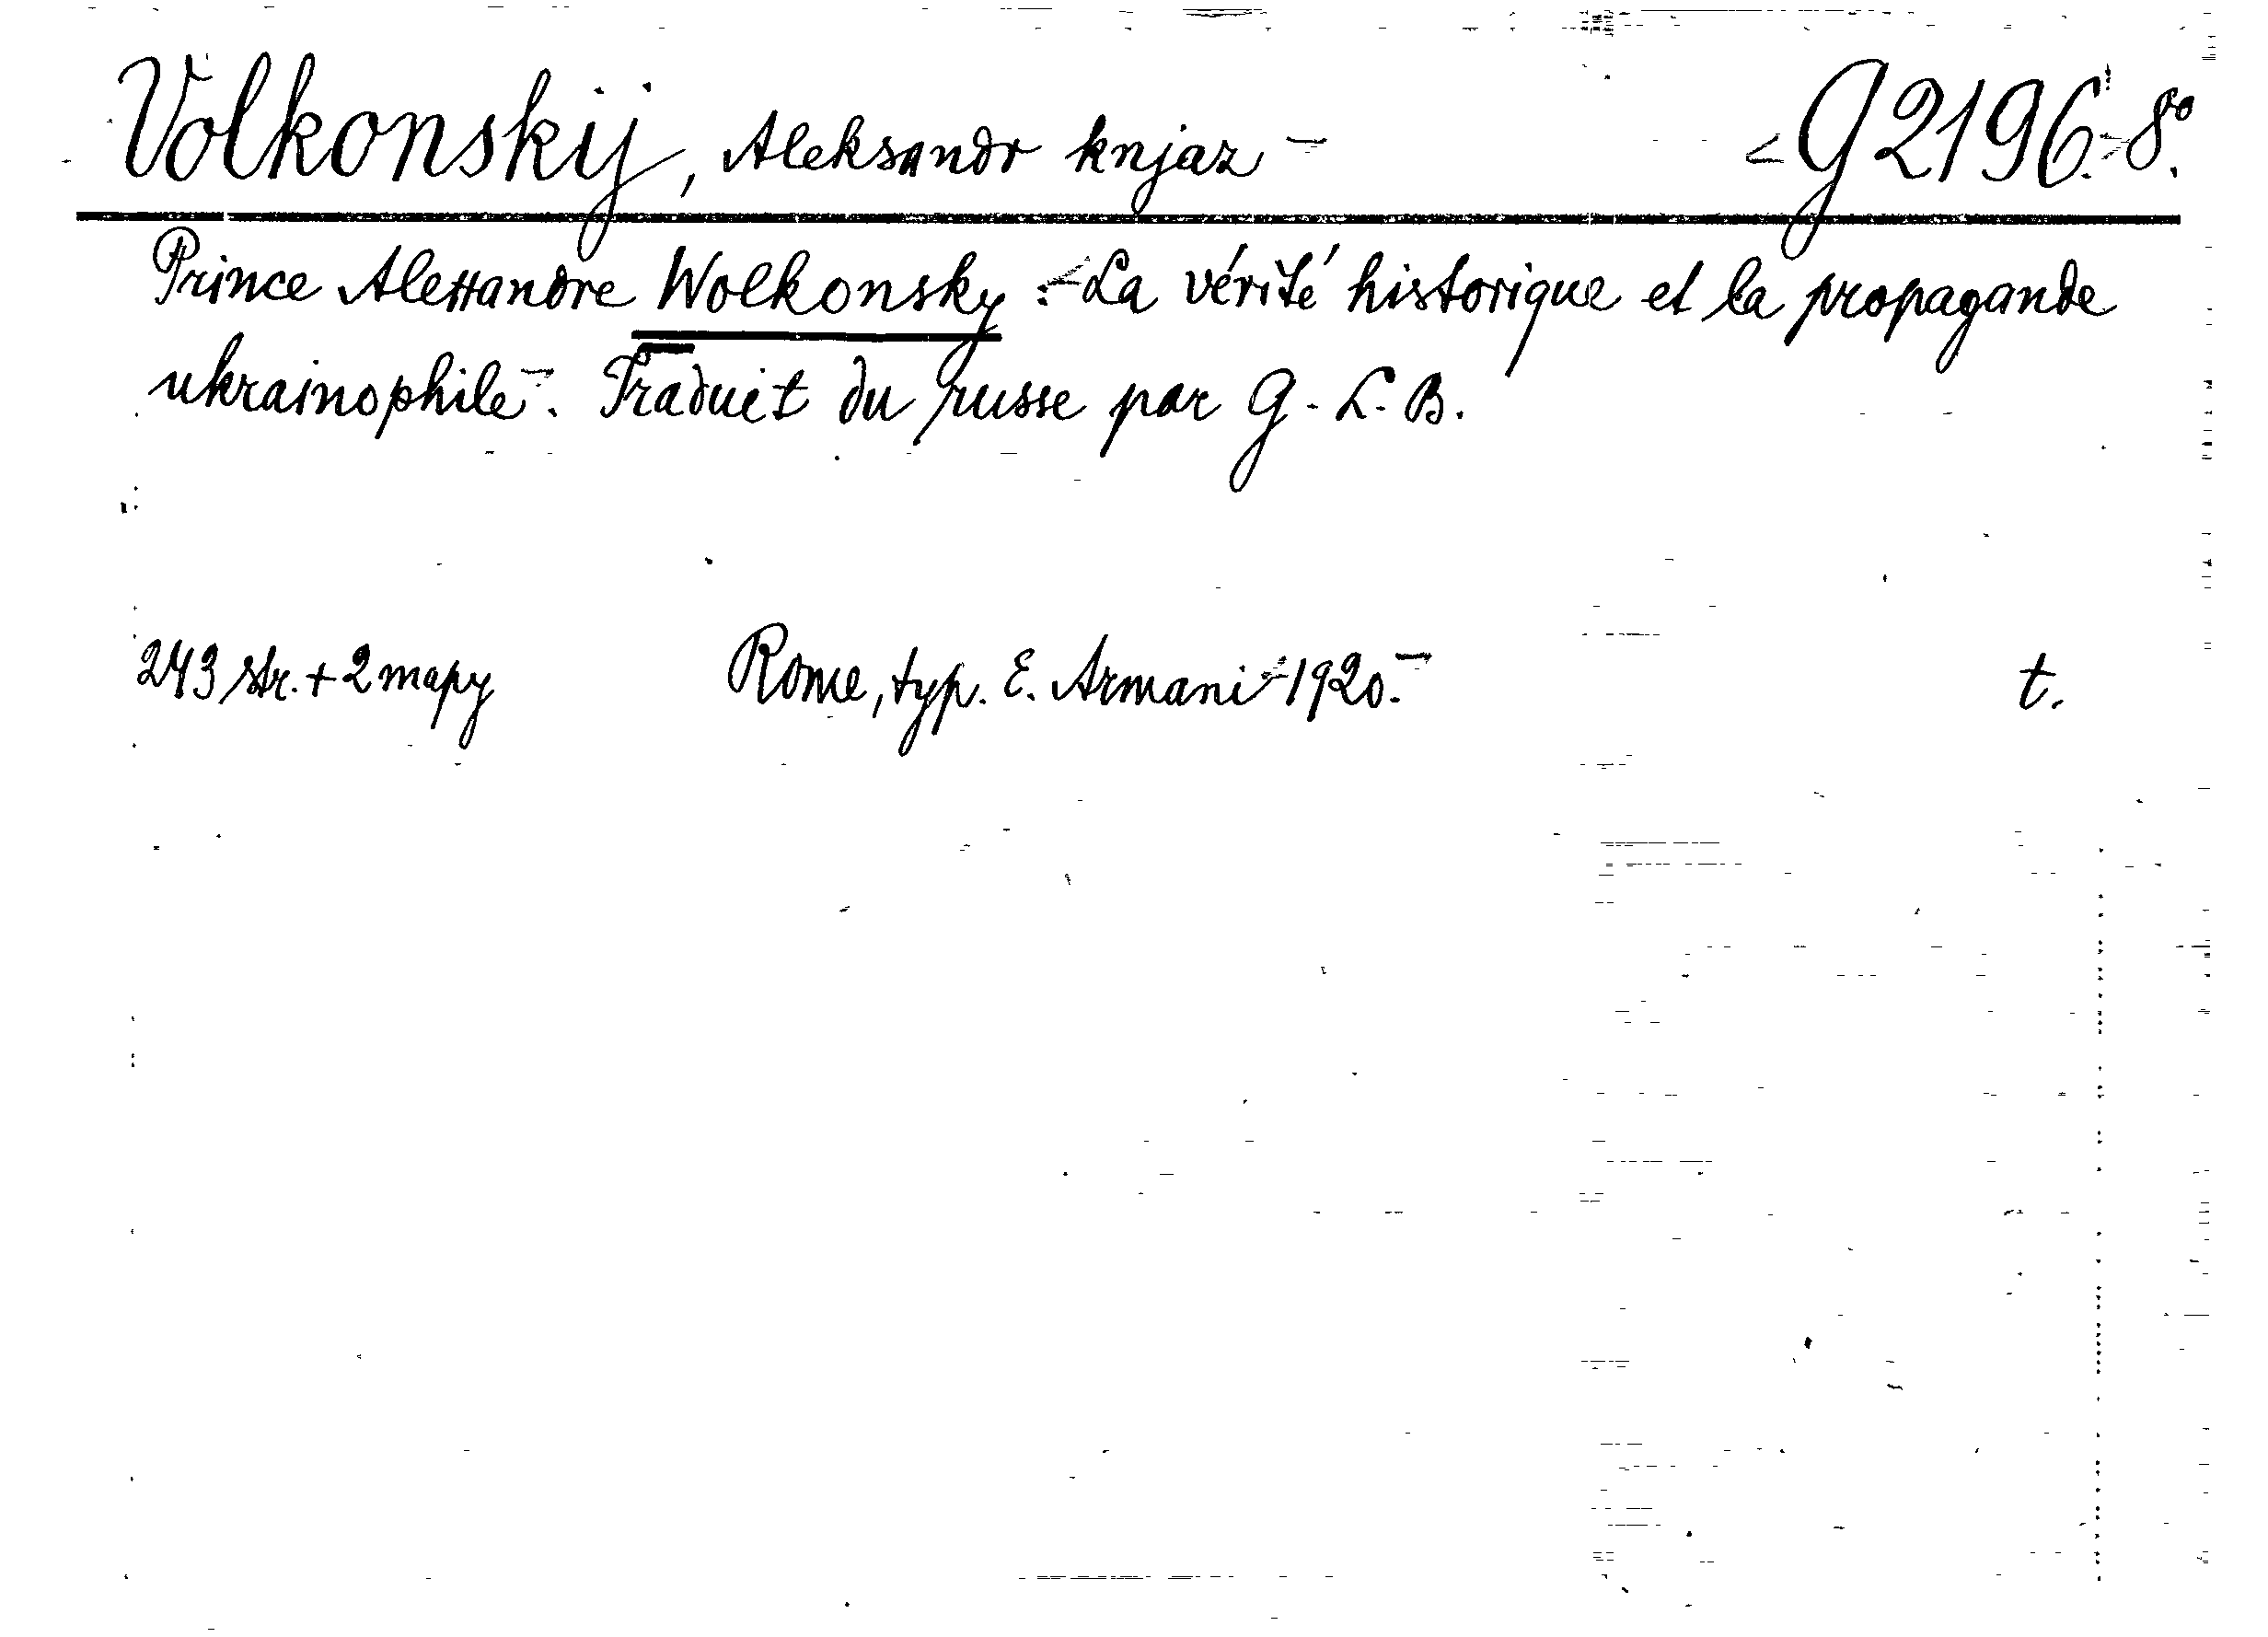 Volkonskij, Aleksandr knjaz G 2196. 8°.
Prince Alessandre Wolkonsky : La vérité historique et la propagande
ukrainophile. Traduit du russe par G. L. B.
243 str. + 2 mapy Rome, typ. E. Armani 1920. t.